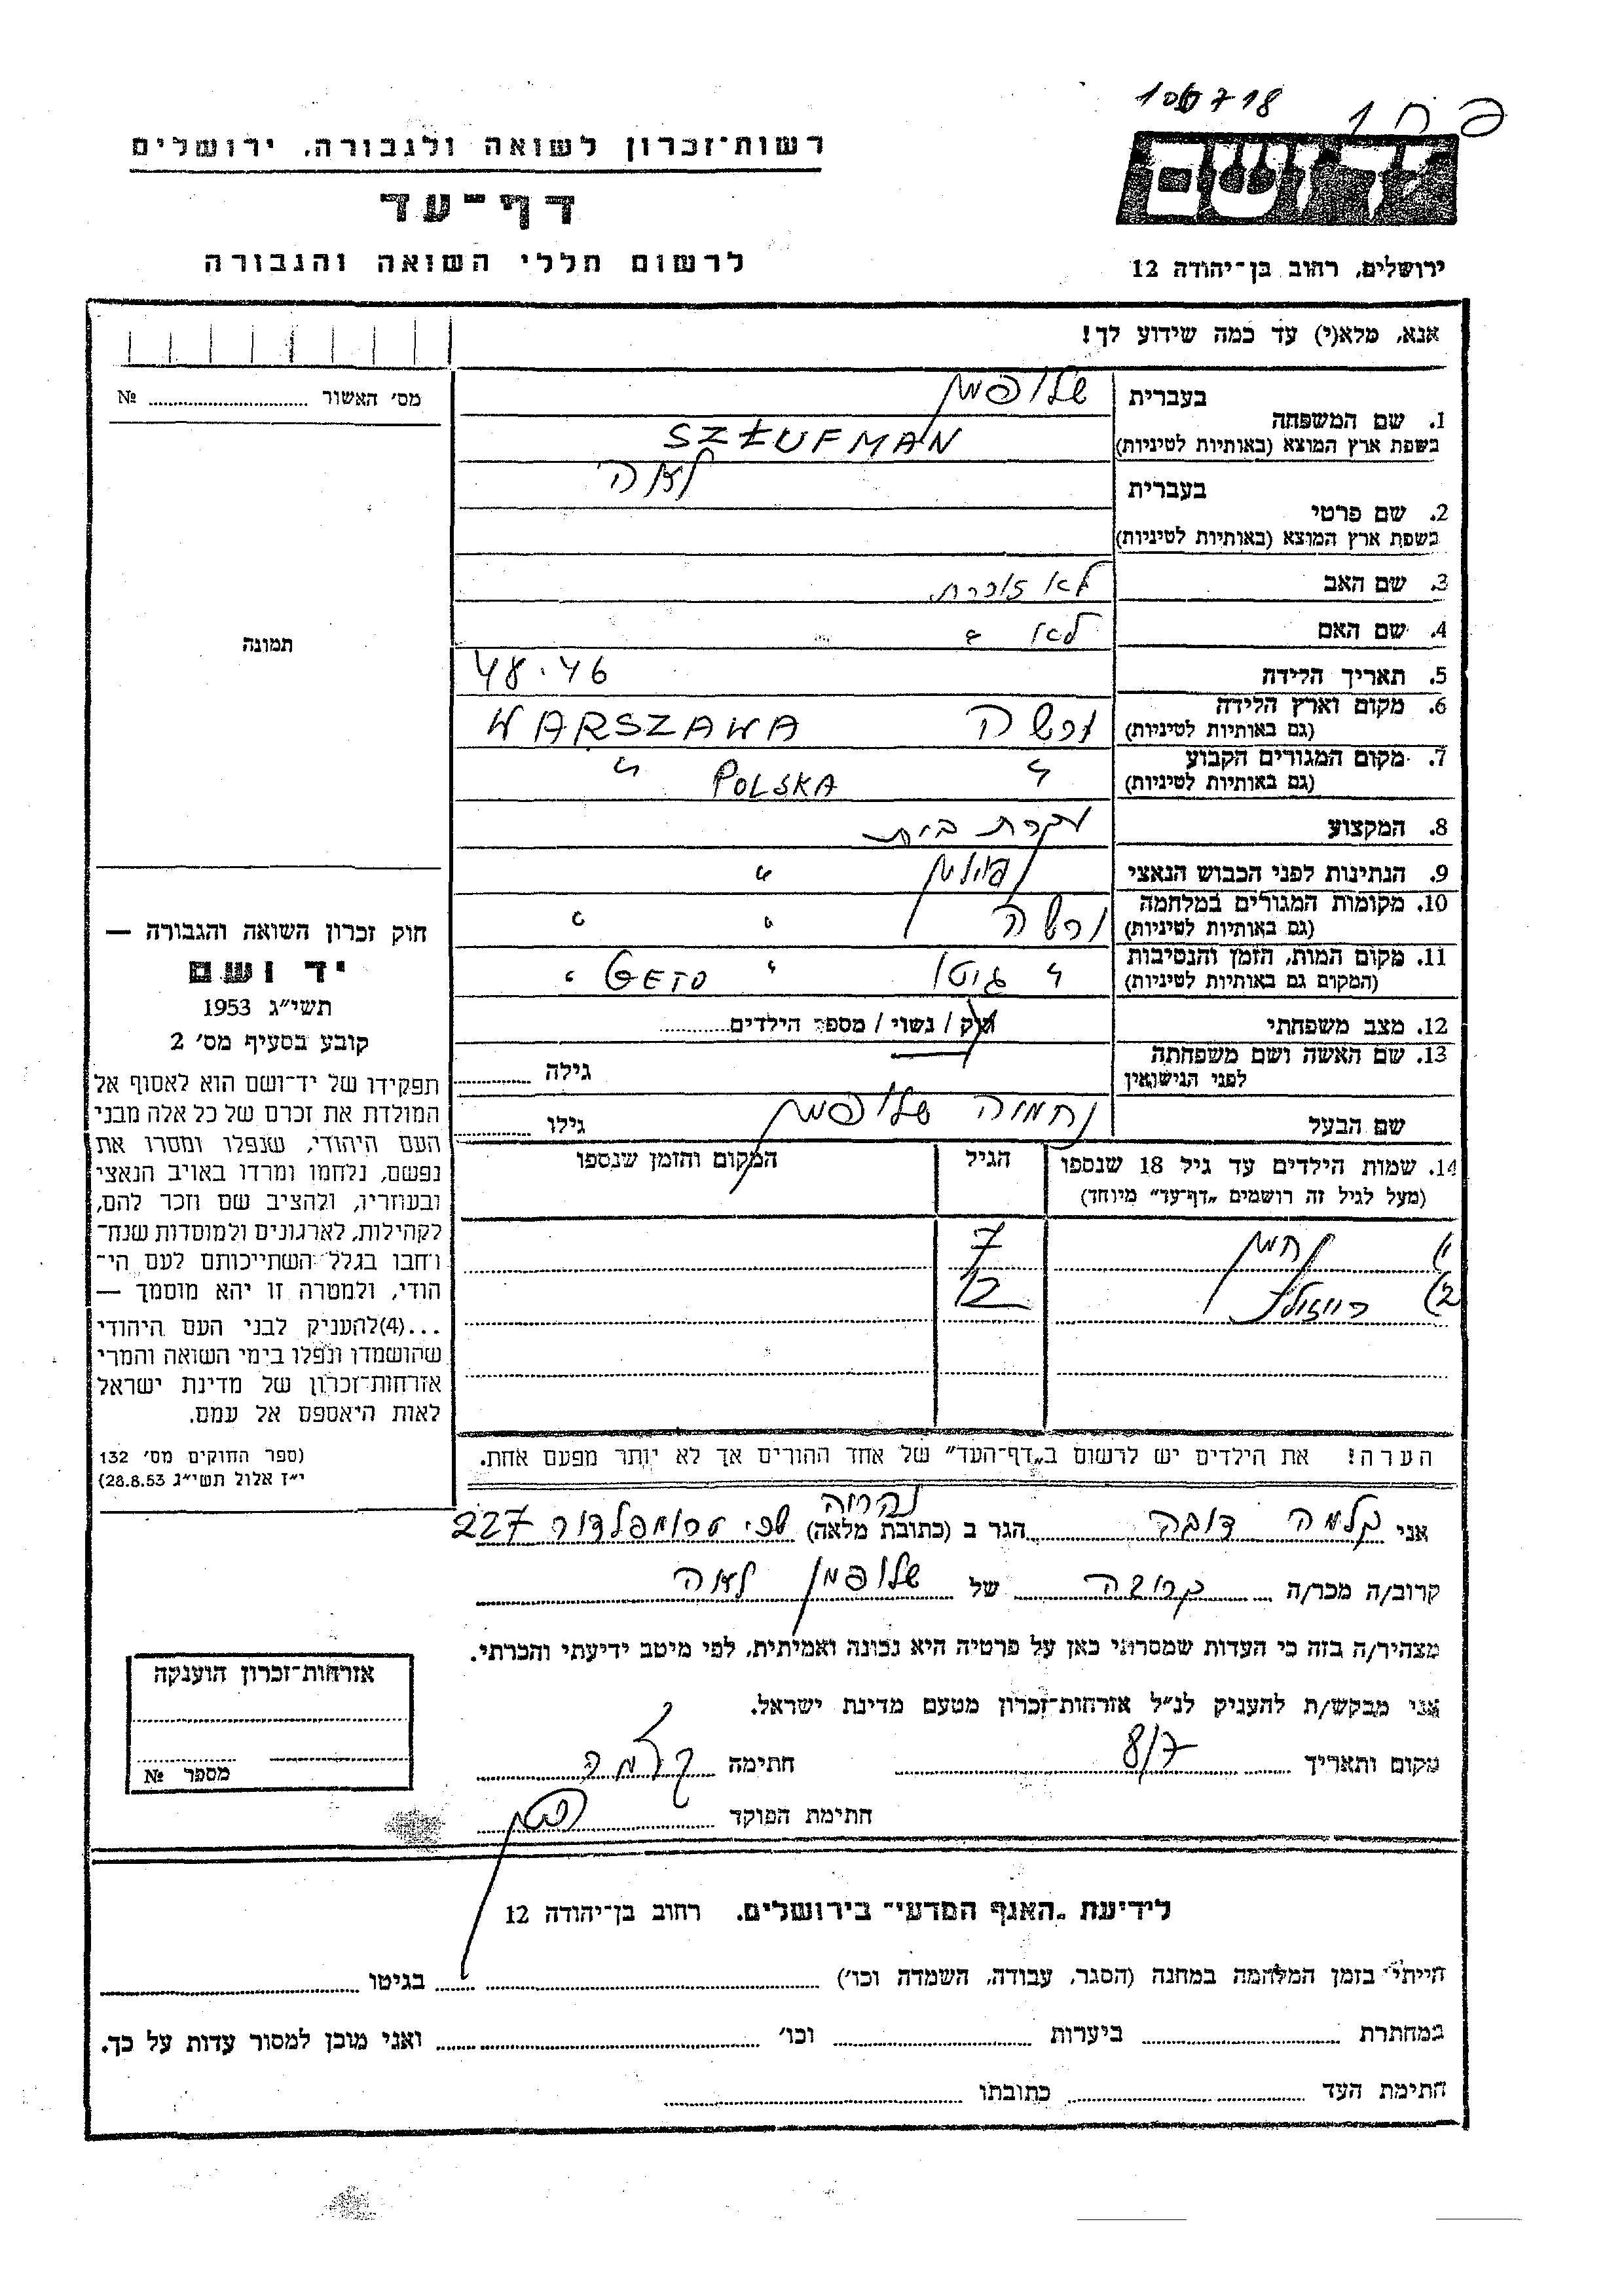 106718
פ ח 1
יד ושם
רשות־זכרון לשואה ולגבורה, ירושלים
דף־עד
לרשום חללי השואה והגבורה
ירושלים, רחוב בן־יהודה 12
אנא, מלא(י) עד כמה שידוע לך!
מס׳ האשור ........ №
1. שם המשפחה
בעברית שלופמן
בשפת ארץ המוצא (באותיות לטיניות) SZŁUFMAN
2. שם פרטי
בעברית לאה
בשפת ארץ המוצא (באותיות לטיניות)
3. שם האב לא זוכרת
4. שם האם לא "
5. תאריך הלידה 48-46
6. מקום וארץ הלידה ורשה WARSZAWA
(גם באותיות לטיניות)
7. מקום המגורים הקבוע " POLSKA "
(גם באותיות לטיניות)
8. המקצוע עקרת בית
9. הנתינות לפני הכבוש הנאצי פולין "
10. מקומות המגורים במלחמה ורשה " "
(גם באותיות לטיניות)
11. מקום המות, הזמן והנסיבות " גיטו " GETO "
(המקום גם באותיות לטיניות)
12. מצב משפחתי רוק / נשוי / מספר הילדים........
13. שם האשה ושם משפחתה
לפני הנישואין גילה ........
שם הבעל נחמיה שלופמן גילו ........
14. שמות הילדים עד גיל 18 שנספו הגיל המקום והזמן שנספו
(מעל לגיל זה רושמים „דף־עד” מיוחד)
1) 7
2) 12
הערה! את הילדים יש לרשום ב„דף־העד” של אחד ההורים אך לא יותר מפעם אחת.
תמונה
חוק זכרון השואה והגבורה —
יד ושם
תשי״ג 1953
קובע בסעיף מס׳ 2
תפקידו של יד־ושם הוא לאסוף אל
המולדת את זכרם של כל אלה מבני
העם היהודי, שנפלו ומסרו את
נפשם, נלחמו ומרדו באויב הנאצי
ובעוזריו, ולהציב שם וזכר להם,
לקהילות, לארגונים ולמוסדות שנח־
רחבו בגלל השתייכותם לעם הי־
הודי, ולמטרה זו יהא מוסמך —
...(4) להעניק לבני העם היהודי
שהושמדו ונפלו בימי השואה והמרי
אזרחות־זכרון של מדינת ישראל
לאות היאספם אל עמם.
(ספר החוקים מס׳ 132
י״ז אלול תשי״ג 28.8.53)
נהריה
אני קלמה דובה הגר ב (כתובת מלאה) טרומפלדור 227
קרוב/ה מכר/ה קרובה של שלופמן לאה
מצהיר/ה בזה כי העדות שמסרתי כאן על פרטיה היא נכונה ואמיתית, לפי מיטב ידיעתי והכרתי.
אני מבקש/ת להעניק לנ״ל אזרחות־זכרון מטעם מדינת ישראל.
מקום ותאריך 8/7 חתימה קלמה
חתימת הפוקד
אזרחות־זכרון הוענקה
מספר №
לידיעת „האגף המדעי” בירושלים, רחוב בן־יהודה 12
הייתי בזמן המלחמה במחנה (הסגר, עבודה, השמדה וכו׳) ........ בגיטו ........
במחתרת ........ ביערות ........ וכו׳ ........ ואני מוכן למסור עדות על כך.
חתימת העד ........ כתובתו ........